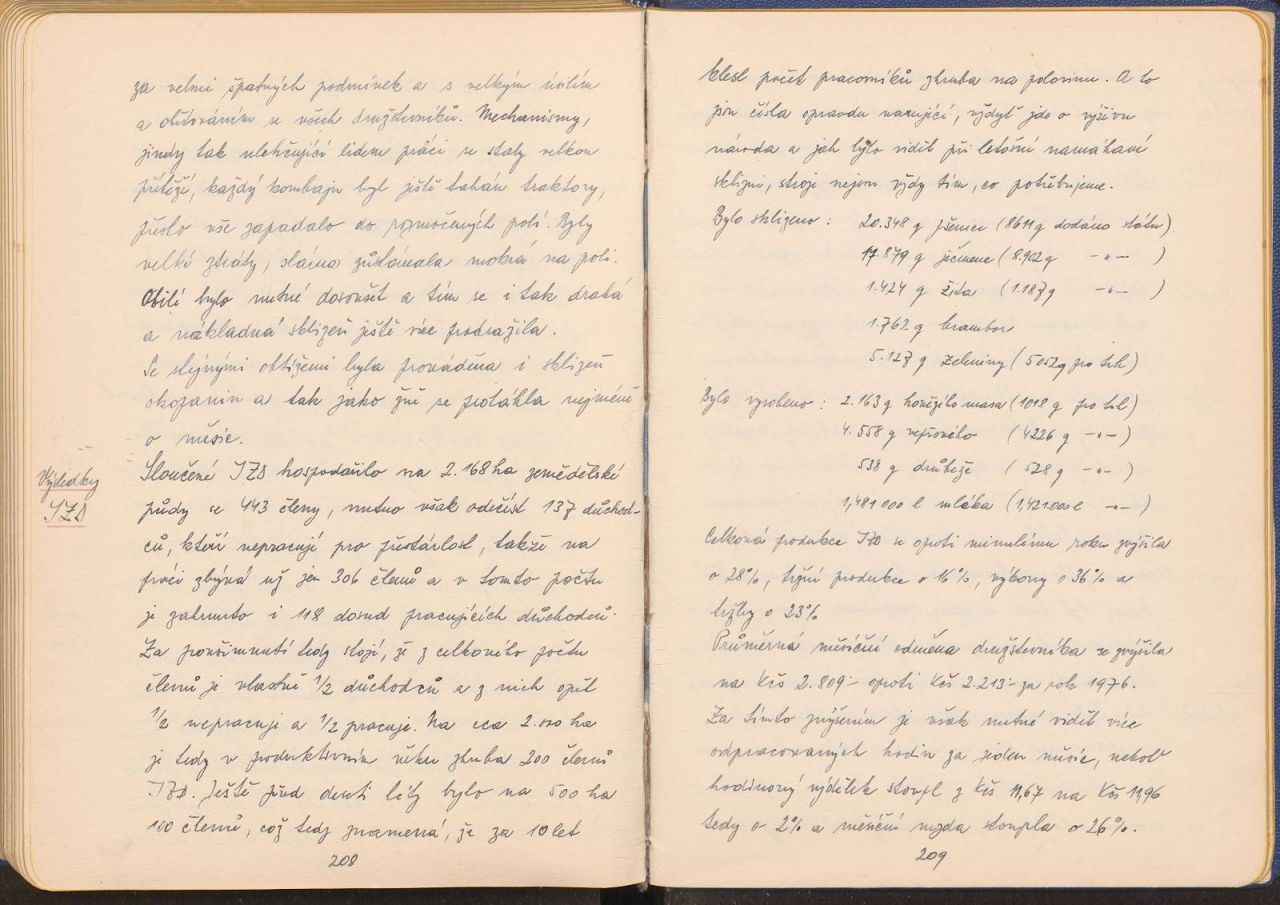 za velmi špatných podmínek a s velkým úsilím
a obětováním se všech družstevníků. Mechanismy,
jindy tak ulehčující lidem práci se staly velkou
přítěží, každý kombajn byl ještě tahán traktory,
přesto vše zapadalo do rozmočených polí. Byly
velké ztráty, sláma zůstávala mokrá na poli.
Obilí bylo nutné dosoušet a tím se i tak drahá
a nákladná sklizeň ještě více podražila.
Se stejnými obtížemi byla prováděna i sklizeň
okopanin a tak jako žně se protáhla nejméně
o měsíc.
Výsledky
JZD
Sloučené JZD hospodařilo na 2.168 ha zemědělské
půdy se 443 členy, nutno však odečíst 137 důchod-
ců, kteří nepracují pro přestárlost, takže na
práci zbývá už jen 306 členů a v tomto počtu
je zahrnuto i 118 dosud pracujících důchodců.
Za povšimnutí tedy stojí, že z celkového počtu
členů je vlastně 1/2 důchodců a z nich opět
1/2 nepracuje a 1/2 pracuje. Na cca 2.000 ha
je tedy v produktivním věku zhruba 200 členů
JZD. Ještě před deseti léty bylo na 500 ha
100 členů, což tedy znamená, že za 10 let
208
klesl počet pracovníků zhruba na polovinu. A to
jsou čísla opravdu varující, vždyť jde o výživu
národa a jak bylo vidět při letošní namáhavé
sklizni, stroje nejsou vždy tím, co potřebujeme.
Bylo sklizeno: 20.348 q pšenice (8611 q dodáno státu).
17.879 q ječmene (8.902 q -"- )
1.424 q žita (1.187 q -"- )
1.762 q brambor
5.127 q zeleniny (5052 q pro trh)
Bylo vyrobeno: 2.163 q hovězího masa (1018 q pro trh)
4.558 q vepřového (4226 q -"- )
538 q drůbeže (528 q -"- )
1,481 000 l mléka (1,421.000 l -"- )
Celková produkce JZD se oproti minulému roku zvýšila
o 28%, tržní produkce o 16%, výkony o 36% a
tržby o 23%
Průměrná měsíční odměna družstevníka se zvýšila
na Kčs 2.809.- oproti Kčs 2.213.- za rok 1976.
Za tímto zvýšením je však nutné vidět více
odpracovaných hodin za jeden měsíc, neboť
hodinový výdělek stoupl z Kčs 11,67 na Kčs 11,96
tedy o 2% a měsíční mzda stoupla o 26%.
209